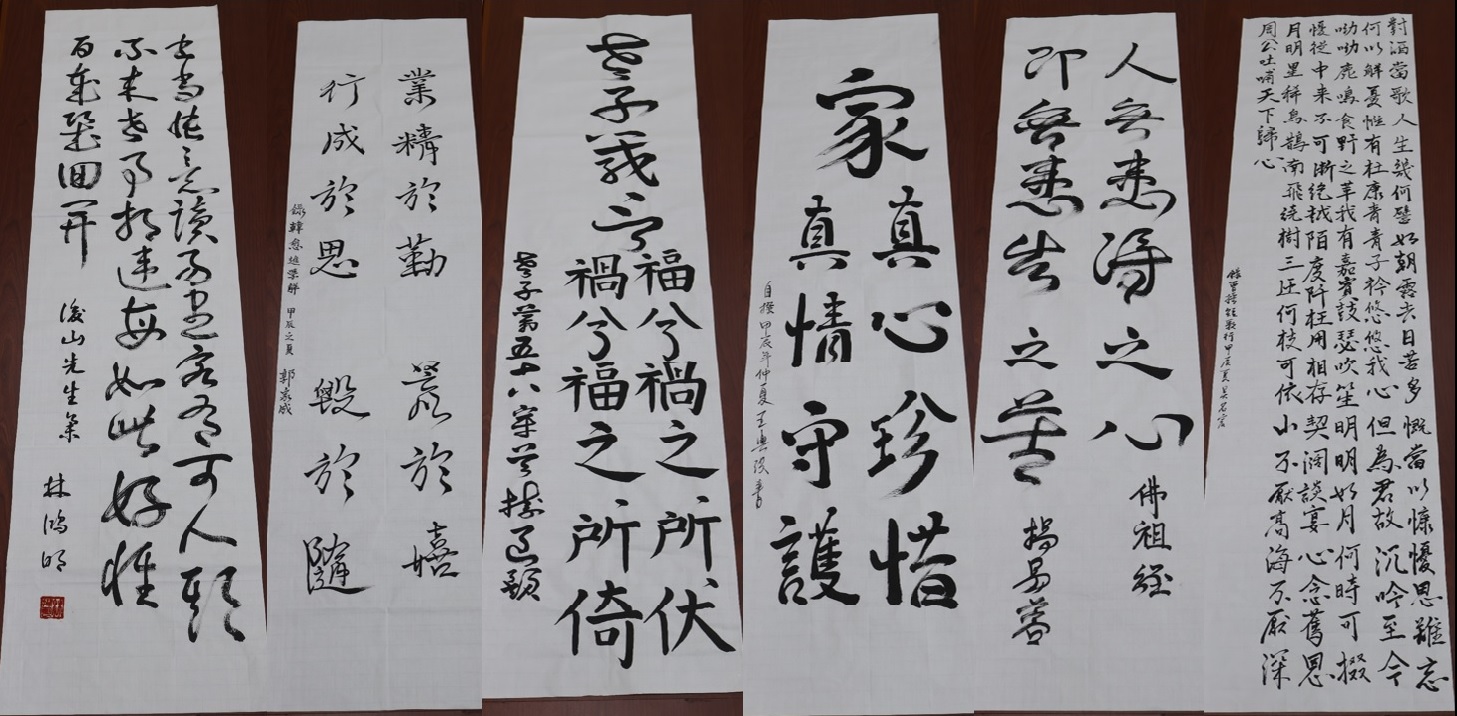 對酒當歌人生幾何譬如朝露去日苦多慨當以慷懮思難忘
何以解憂惟有杜康青青子衿悠悠我心但為君故沉吟至今
呦呦鹿鳴食野之苹我有嘉賓鼓瑟吹笙明明如月何時可掇
慢從中来不可斷绝越陌度阡枉用相存契阔談宴心念舊恩
月明星稀烏鵲南飛绕樹三匝何枝可依山不厭高海不厭深
周公吐哺天下歸心
錄曹操短歌行甲辰夏
人無患得之心 佛祖經
即無患失之苦
家
真心珍惜
真情守護
自撰甲辰年仲夏
老子義云
福兮禍之所伏
禍兮福之所倚
老子第五十八章
業精於勤 荒於嬉
行成於思 毀於隨
錄韓愈進學解 甲辰之夏 郭家成
書當快意讀易盡客有可人期
不来世事相違每如此好懷
百歲幾回開 後山先生集
林鴻明